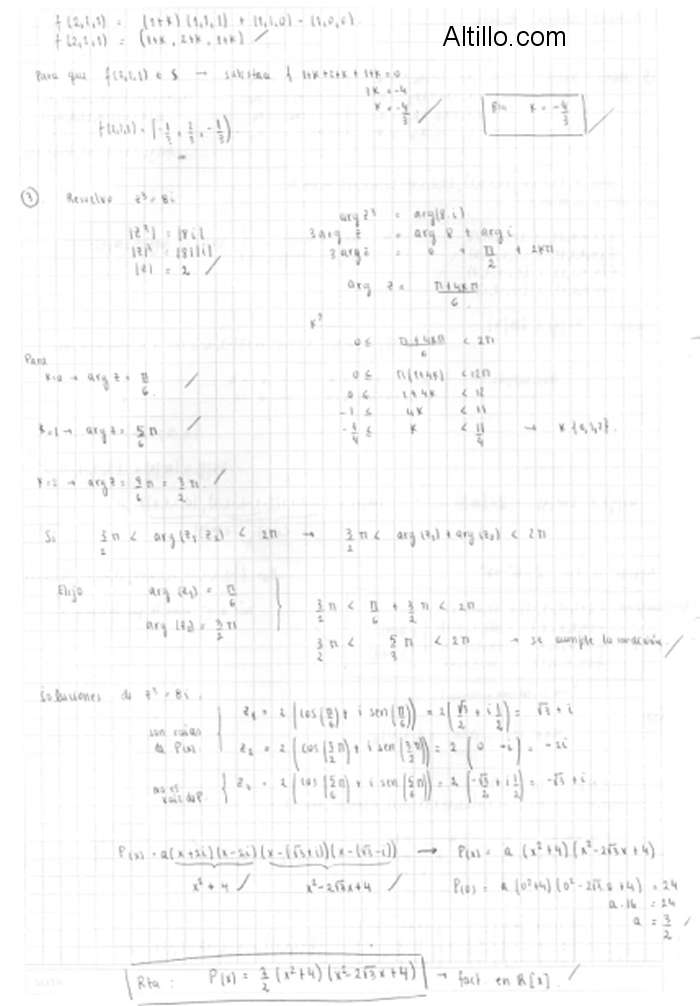 Altillo.com
f(2,1,1) = (1+k)(1,1,1) + (1,1,0) - (1,0,0)
f(2,1,1) = (1+k, 2+k, 1+k)
Para que f(2,1,1) ∈ S → satisfaca 1+k+2+k+1+k=0
3k = -4
k = -4/3
Rta k = -4/3
f(2,1,1) = (-1/3, 2/3, -1/3)
③ Resuelvo z³ = 8i
|z³| = |8i|
|z|³ = |8||i|
|z| = 2
arg z³ = arg(8.i)
3 arg z = arg 8 + arg i
3 arg z = 0 + π/2 + 2kπ
arg z = π+4kπ/6
k?
0 ≤ π+4kπ/6 < 2π
0 ≤ π(1+4k) < 12π
0 ≤ 1+4k < 12
-1 ≤ 4k < 11
-1/4 ≤ k < 11/4 → k {0,1,2}.
Para
k=0 → arg z = π/6
k=1 → arg z = 5/6 π
k=2 → arg z = 9/6 π = 3/2 π.
Si 3/2 π < arg(z₁ z₂) < 2π → 3/2 π < arg(z₁) + arg(z₂) < 2π
Elijo arg(z₁) = π/6
arg(z₂) = 3/2 π
3/2 π < π/6 + 3/2 π < 2π
3/2 π < 5/3 π < 2π → se cumple la condición.
Soluciones de z³ = 8i.
son raíces de P(x)
z₁ = 2 (cos(π/6) + i sen(π/6)) = 2(√3/2 + i 1/2) = √3 + i
z₂ = 2 (cos(3/2 π) + i sen(3/2 π)) = 2 (0 - i) = -2i
no es raíz de P.
= 2 (cos(5/6 π) + i sen(5/6 π)) = 2 (-√3/2 + i 1/2) = -√3 + i
P(x) = a(x+2i)(x-2i)(x-(√3+i))(x-(√3-i)) → P(x) = a (x²+4)(x²-2√3x+4)
x²+4 x²-2√3x+4
P(0) = a(0²+4)(0²-2√3.0+4) = 24
a.16 = 24
a = 3/2
Rta: P(x) = 3/2 (x²+4)(x²-2√3x+4) → fact. en R[x].